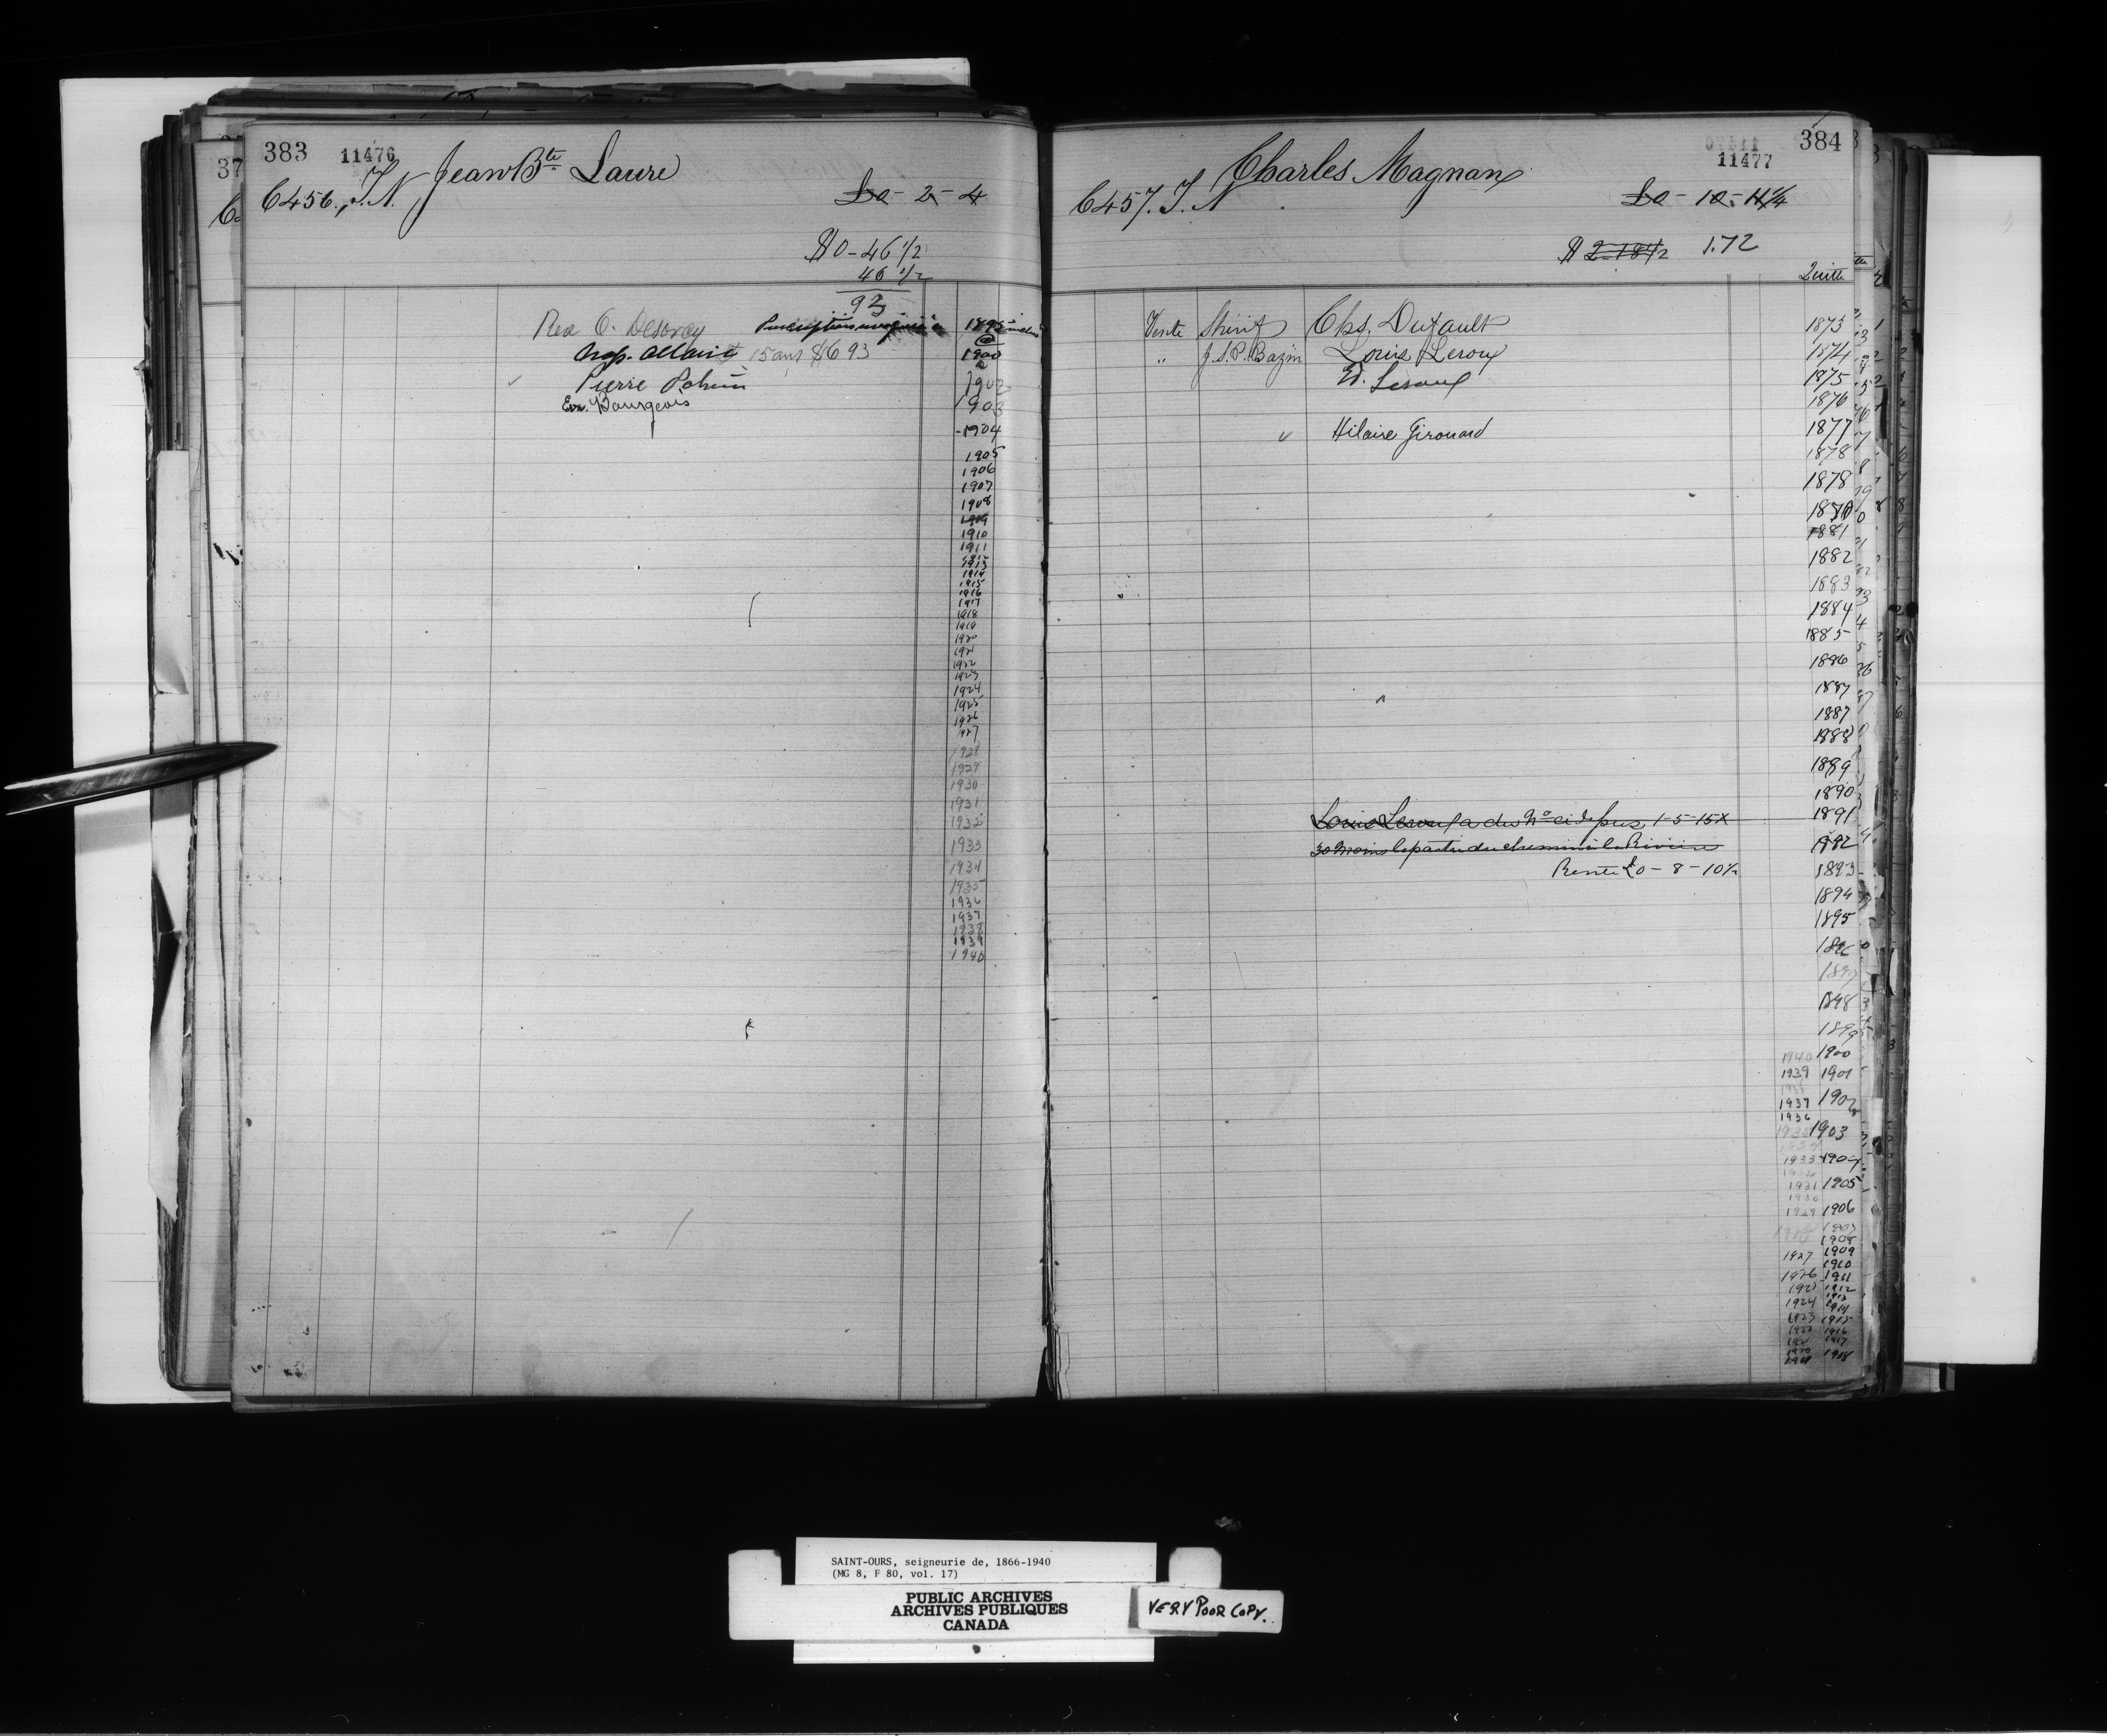 383 11476 Jean Bte Laure
C 456. T. N. £0 - 2 - 4
$0 - 46 1/2
46 1/2
93
Rev O. Desorcy 1895
Nap. Allaire 15 ans $6 93 1900
Pierre 1902
Bourgeois 1903
1904
1905
1906
1907
1908
1909
1910
1911
1912
1913
1914
1915
1916
1917
1918
1919
1920
1921
1922
1923
1924
1925
1926
1927
1928
1929
1930
1931
1932
1933
1934
1935
1936
1937
1938
1939
1940
384
11477
Charles Magnan
C 457. T. N. £0 - 10 - 11 1/4
$ 2-18 1/2 1.72
Quitte
Vente Shérif Chs. Dufault 1873
" J. S. P. Bazin Louis Leroux 1874
Ed. Leroux 1875
1876
Hilaire Girouard 1877
1878
1878
1881
1882
1883
1884
1885
1886
1887
1887
1888
1889
1890
Louis Leroux a du No ci depuis 1-5-15X 1891
30 Moins la partie du chemin à la Rivière 1892
Rente £0 - 8 - 10 1/2 1893
1894
1895
1896
1897
1898
1899
1940 1900
1939 1901
1937 1902
1936
1935 1903
1933 1904
1931 1905
1930
1929 1906
1907
1908
1927 1909
1910
1926 1911
1925 1912
1913
1924 1914
1923 1915
1922 1916
1921 1917
1920
1919 1918
SAINT-OURS, seigneurie de, 1866-1940
(MG 8, F 80, vol. 17)
PUBLIC ARCHIVES
ARCHIVES PUBLIQUES
CANADA
VERY POOR COPY.